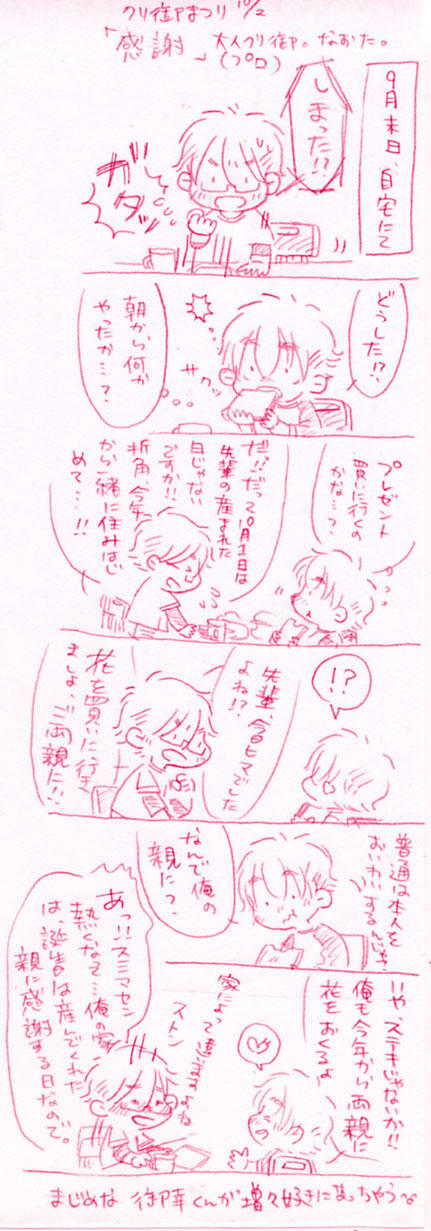 クリ御まつり 10/2
「感謝」大人クリ御。なおた。
(プロ)
9月末日、自宅にて
しまった!?
ガタッ
どうした!?
朝から何か
やったか…?
サクッ
プレゼント
買いに行くの
かな…?
だっ!!だって10月1日は
先輩の産まれた
日じゃない
ですか!!
折角、今年
から一緒に住みはじ
めて…!!
!?
先輩、今日ヒマでした
よね!?
花を買いに行き
ましょ、ご両親に!!
普通は本人を
おいわいするんじゃ…
なんで俺の
親に?
いや、ステキじゃないか!!
俺も今年から両親に
花をおくるよ
家によって違いますよね
ストン
あっ!!スミマセン
熱くなって…俺の家
は、誕生日は産んでくれた
親に感謝する日なので。
まじめな御幸くんが増々好きになっちゃう